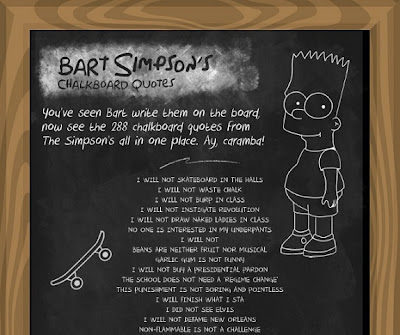 BART SIMPSON'S
CHALKBOARD QUOTES
You've seen Bart write them on the board,
now see the 288 chalkboard quotes from
The Simpson's all in one place. Ay, caramba!
I WILL NOT SKATEBOARD IN THE HALLS
I WILL NOT WASTE CHALK
I WILL NOT BURP IN CLASS
I WILL NOT INSTIGATE REVOLUTION
I WILL NOT DRAW NAKED LADIES IN CLASS
NO ONE IS INTERESTED IN MY UNDERPANTS
I WILL NOT
BEANS ARE NEITHER FRUIT NOR MUSICAL
GARLIC GUM IS NOT FUNNY
I WILL NOT BUY A PRESIDENTIAL PARDON
THE SCHOOL DOES NOT NEED A 'REGIME CHANGE'
THIS PUNISHMENT IS NOT BORING AND POINTLESS
I WILL FINISH WHAT I STA
I DID NOT SEE ELVIS
I WILL NOT DEFAME NEW ORLEANS
NON-FLAMMABLE IS NOT A CHALLENGE